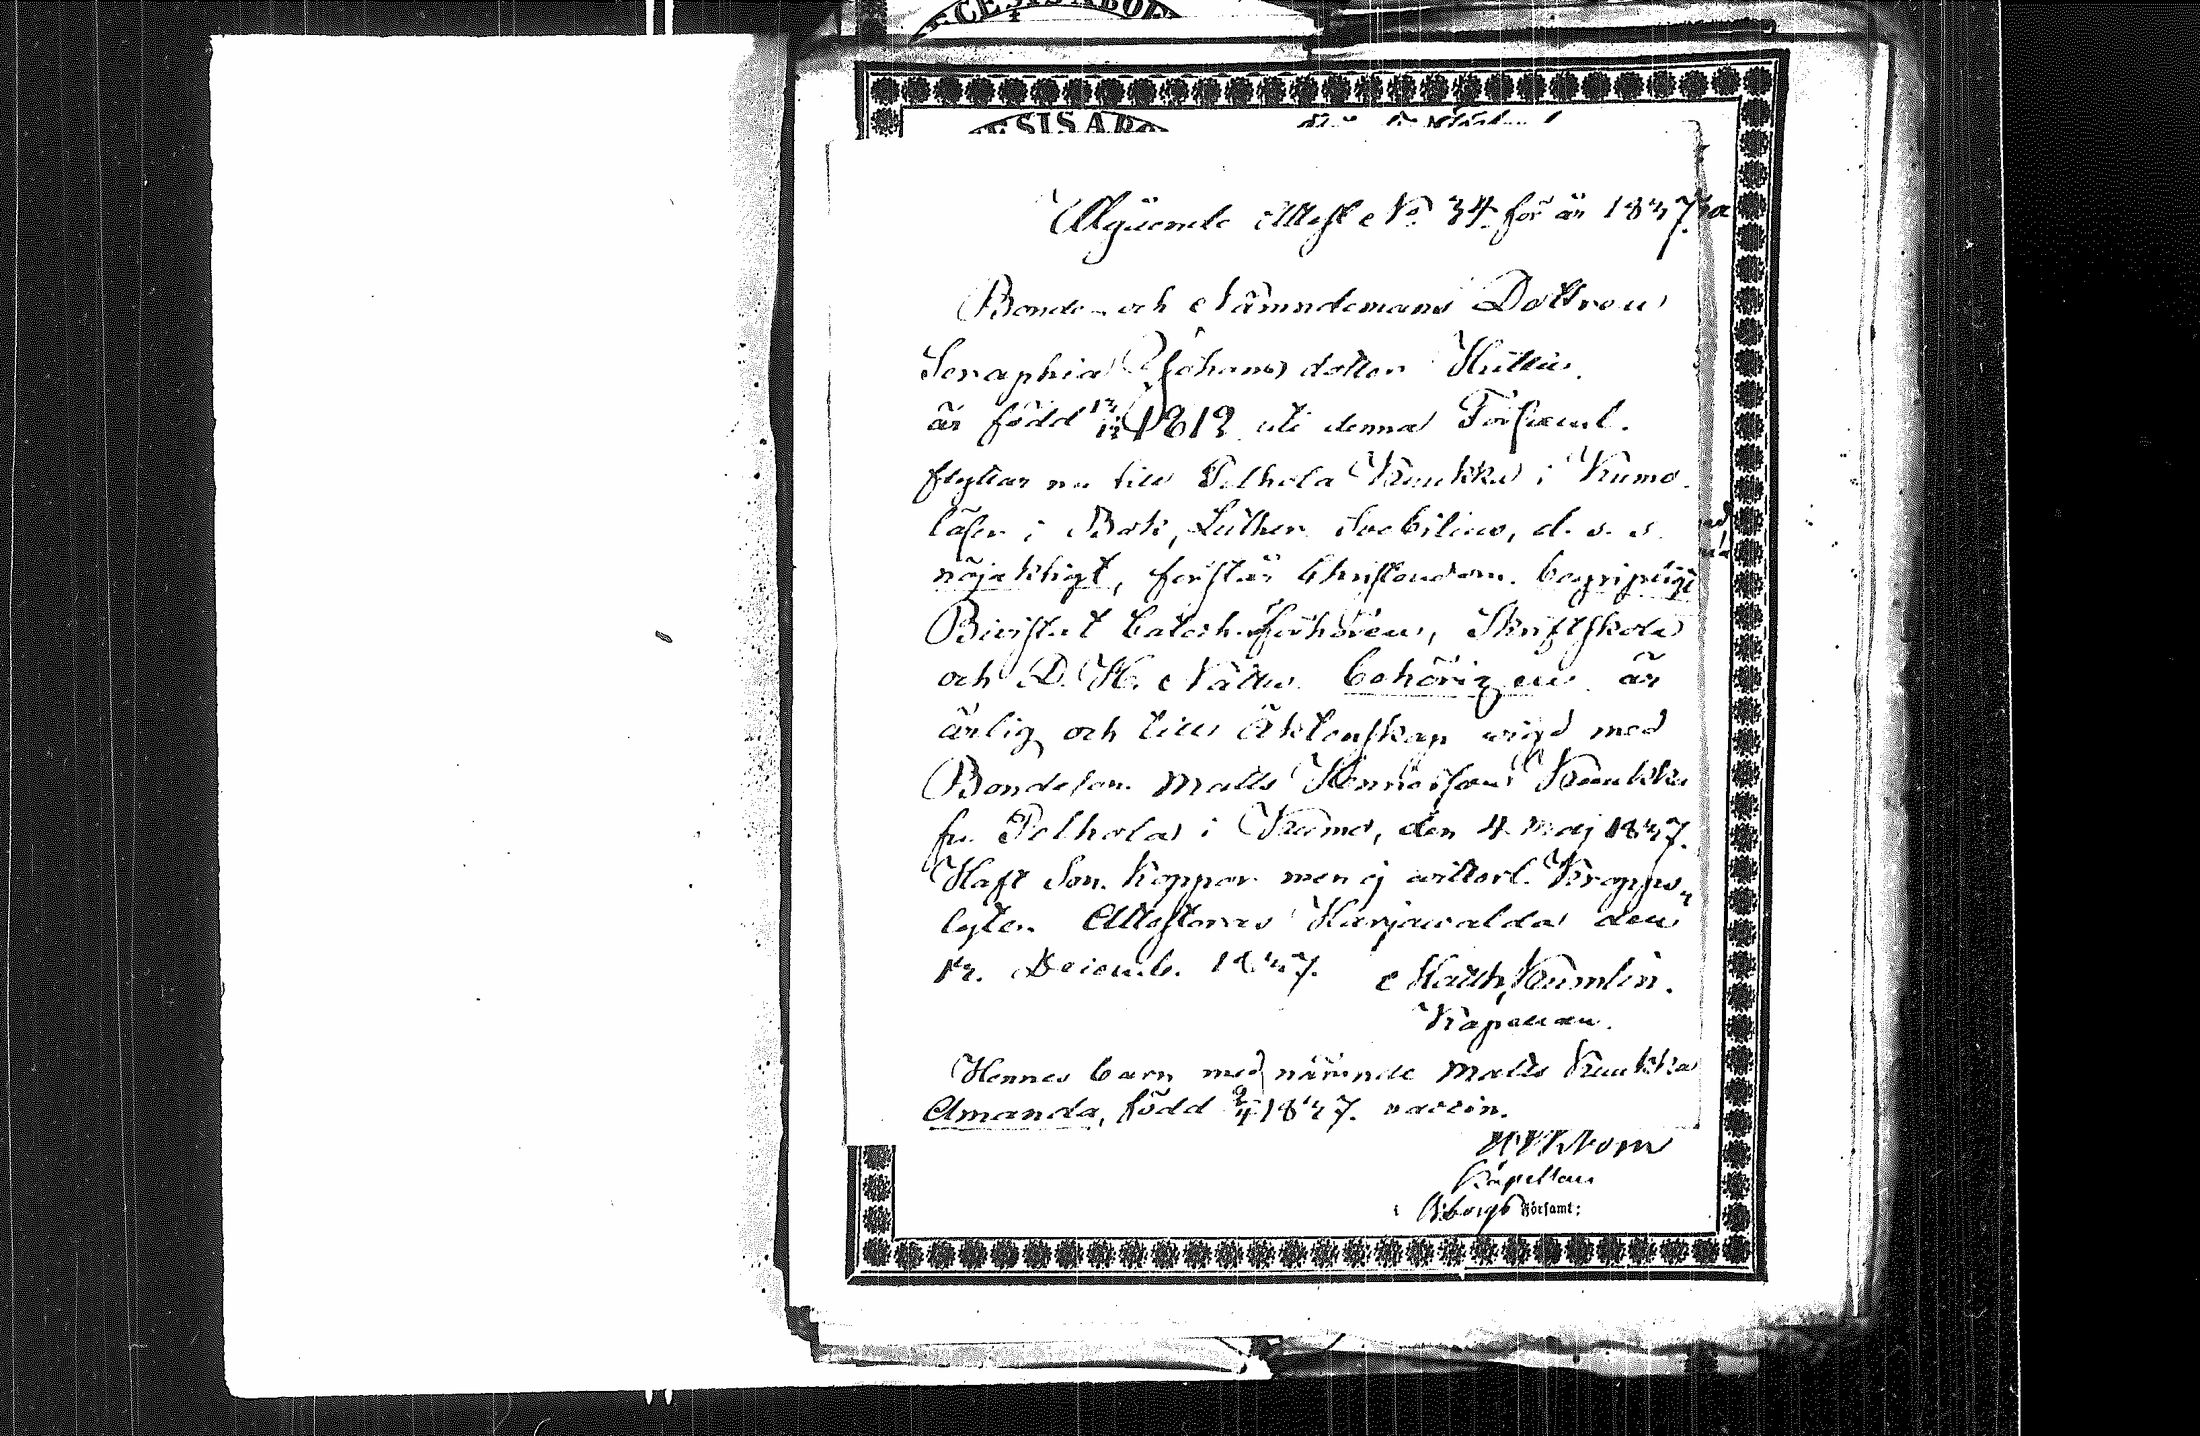 CESIS ABOE
ESIS ABO
Utgående Attest No 34 för år 1847.
Bonde- och Nämndemans Dottren
Seraphia Johans dotter Huttiu.
är född 12/12 1819 uti denna Församl.
flyttar nu till Pelhola Kuukka i Kumo.
läser i Bok, Luther Svebilius, d. s. s.
nöjaktigt, förstår Christendom. begripligt
Bivistat Catech. förhören, Skriftskola
och D. H. Nattv. behörigen. är
ärlig och till Äktenskap wigd med
Bondeson. Matts Henricsson Kuukka
fr. Pelhola i Kumo, den 4 Maj 1847.
Haft Son. koppor men ej witterl. Kropps-
lyten. Attesteras Harjavalda den
12. Decemb. 1847. Matth. Kumlin.
Kapellan.
Hennes barn med nämnde Matts Kuukka
Amanda, född 2/4 1847. vaccin.
Kapellan
Församl: